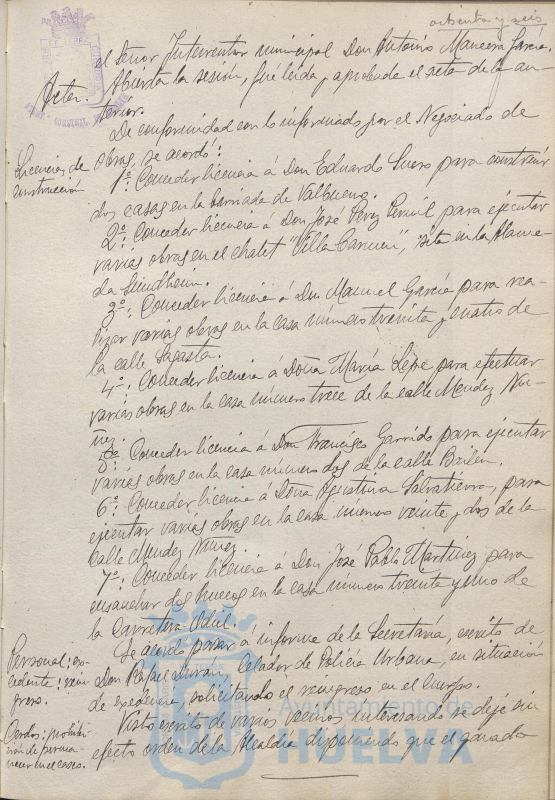 ochenta y seis
el Señor Interventor municipal Don Antonio Mancera García.
Acta.
Abierta la sesión, fué leída y aprobada el acta de la an-
terior.
De conformidad con lo informado por el Negociado de
Licencias de construcción
obras, se acordó:
1º: Conceder licencia á Don Eduardo Suero para construir
dos casas en la barriada de Valbueno.
2º: Conceder licencia á Don José Pérez para ejecutar
varias obras en el chalet "Villa Carmen", sita en la Alame-
da Sundheim.
3º: Conceder licencia á Don Manuel García para rea-
lizar varias obras en la casa número treinta y cuatro de
la calle Sagasta.
4º: Conceder licencia á Doña María Lepe para efectuar
varias obras en la casa número trece de la calle Mendez Nu-
ñez.
5º: Conceder licencia á Don Francisco Garrido para ejecutar
varias obras en la casa número dos de la calle Bailén.
6º: Conceder licencia á Doña Agustina Salvatierra, para
ejecutar varias obras en la casa número veinte y dos de la
calle Mendez Núñez.
7º: Conceder licencia á Don José Pablo Martínez para
ensanchar dos huecos en la casa número treinta y uno de
la Carretera Odiel.
Se acordó pasar á informe de la Secretaría, escrito de
Personal: ex-
cedente: rein-
greso.
Don Rafael Durán, Celador de Policía Urbana, en situación
de excedencia, solicitando el reingreso en el Cuerpo.
Visto escrito de varios vecinos interesando se deje sin
Cerdos: prohibi-
ción de perma-
necer en el casco.
efecto orden de la Alcaldía disponiendo que el ganado
Ayuntamiento de
HUELVA